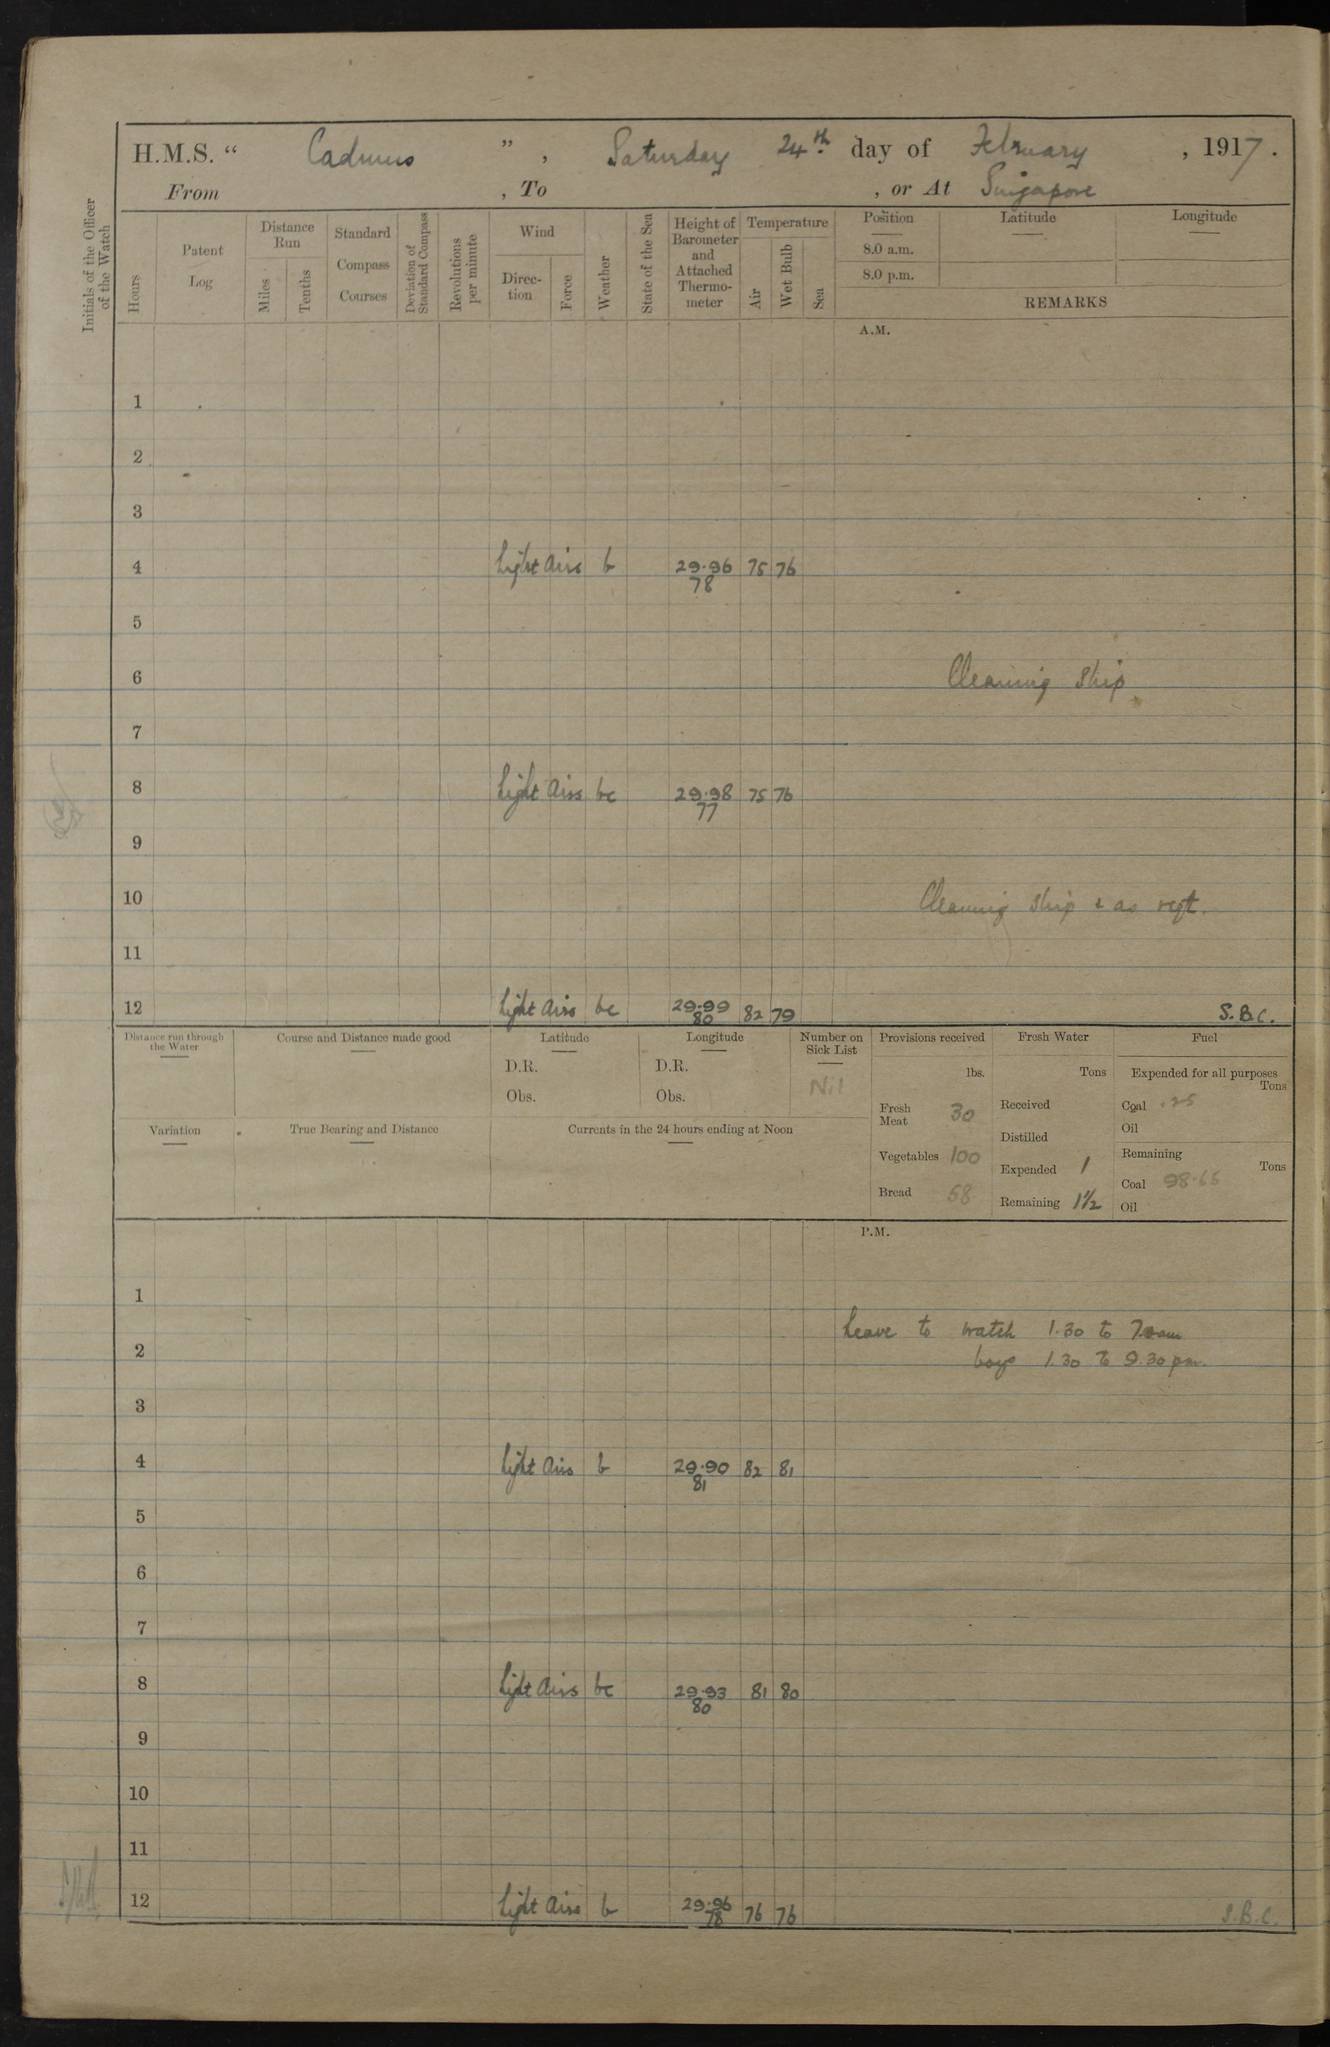 H.M.S. “ Cadmus ” , Saturday 24th day of February , 1917.
From , To , or At Singapore
Initials of the Officer of the Watch
Hours
Patent Log
Distance Run
Miles
Tenths
Standard Compass Courses
Deviation of Standard Compass
Revolutions per minute
Wind
Direc-tion
Force
Weather
State of the Sea
Height of Barometer and Attached Thermo-meter
Temperature
Air
Wet Bulb
Sea
Position
8.0 a.m.
8.0 p.m.
Latitude
Longitude
REMARKS
A.M.
1
2
3
4 Light airs b 29.96 75 76
78
5
6 Cleaning Ship
7
8 Light airs bc 29.98 75 76
77
9
10 Cleaning ship & as reqt.
11
12 Light airs bc 29.99 82 79 S.B.C.
80
Distance run through the Water
Course and Distance made good
Latitude
D.R.
Obs.
Longitude
D.R.
Obs.
Number on Sick List
Nil
Variation
True Bearing and Distance
Currents in the 24 hours ending at Noon
Provisions received
lbs.
Fresh Meat 30
Vegetables 100
Bread 58
Fresh Water
Tons
Received
Distilled
Expended 1
Remaining 1½
Fuel
Expended for all purposes
Tons
Coal .25
Oil
Remaining
Tons
Coal 98.65
Oil
P.M.
1
Leave to watch 1.30 to 7.0am
2 boys 1.30 to 9.30 pm.
3
4 Light airs b 29.90 82 81
81
5
6
7
8 Light airs bc 29.93 81 80
80
9
10
11
12 Light airs b 29.96 76 76 S.B.C.
78